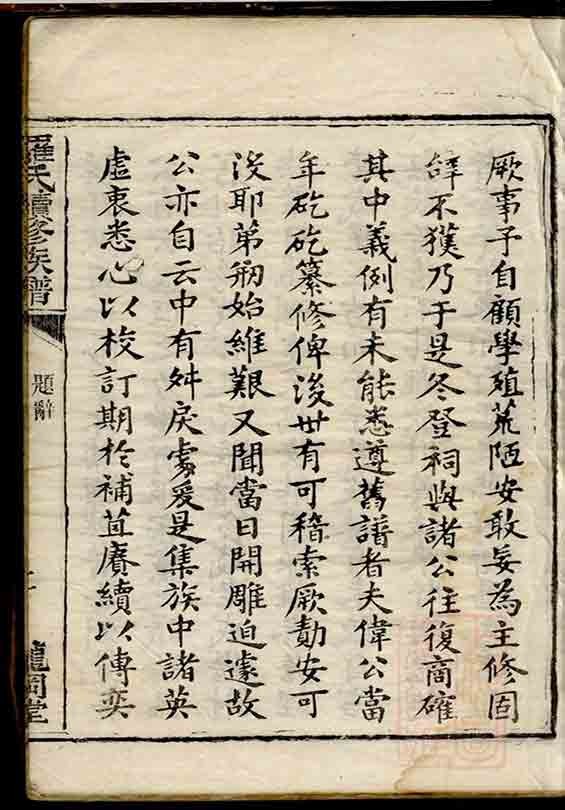 厥事予自顧學殖荒陋安敢妄為主修固
辞不獲乃于是冬登祠與諸公往復商確
其中義例有未能悉遵舊譜者夫偉公當
年矻矻纂修俾後世有可稽索厥勣安可
没耶第剏始維艱又聞當日開雕迫遽故
公亦自云中有舛戾處爰是集族中諸英
虛衷悉心以校訂期於補苴賡續以傳奕
羅氏續修族譜
題辭
龍岡堂